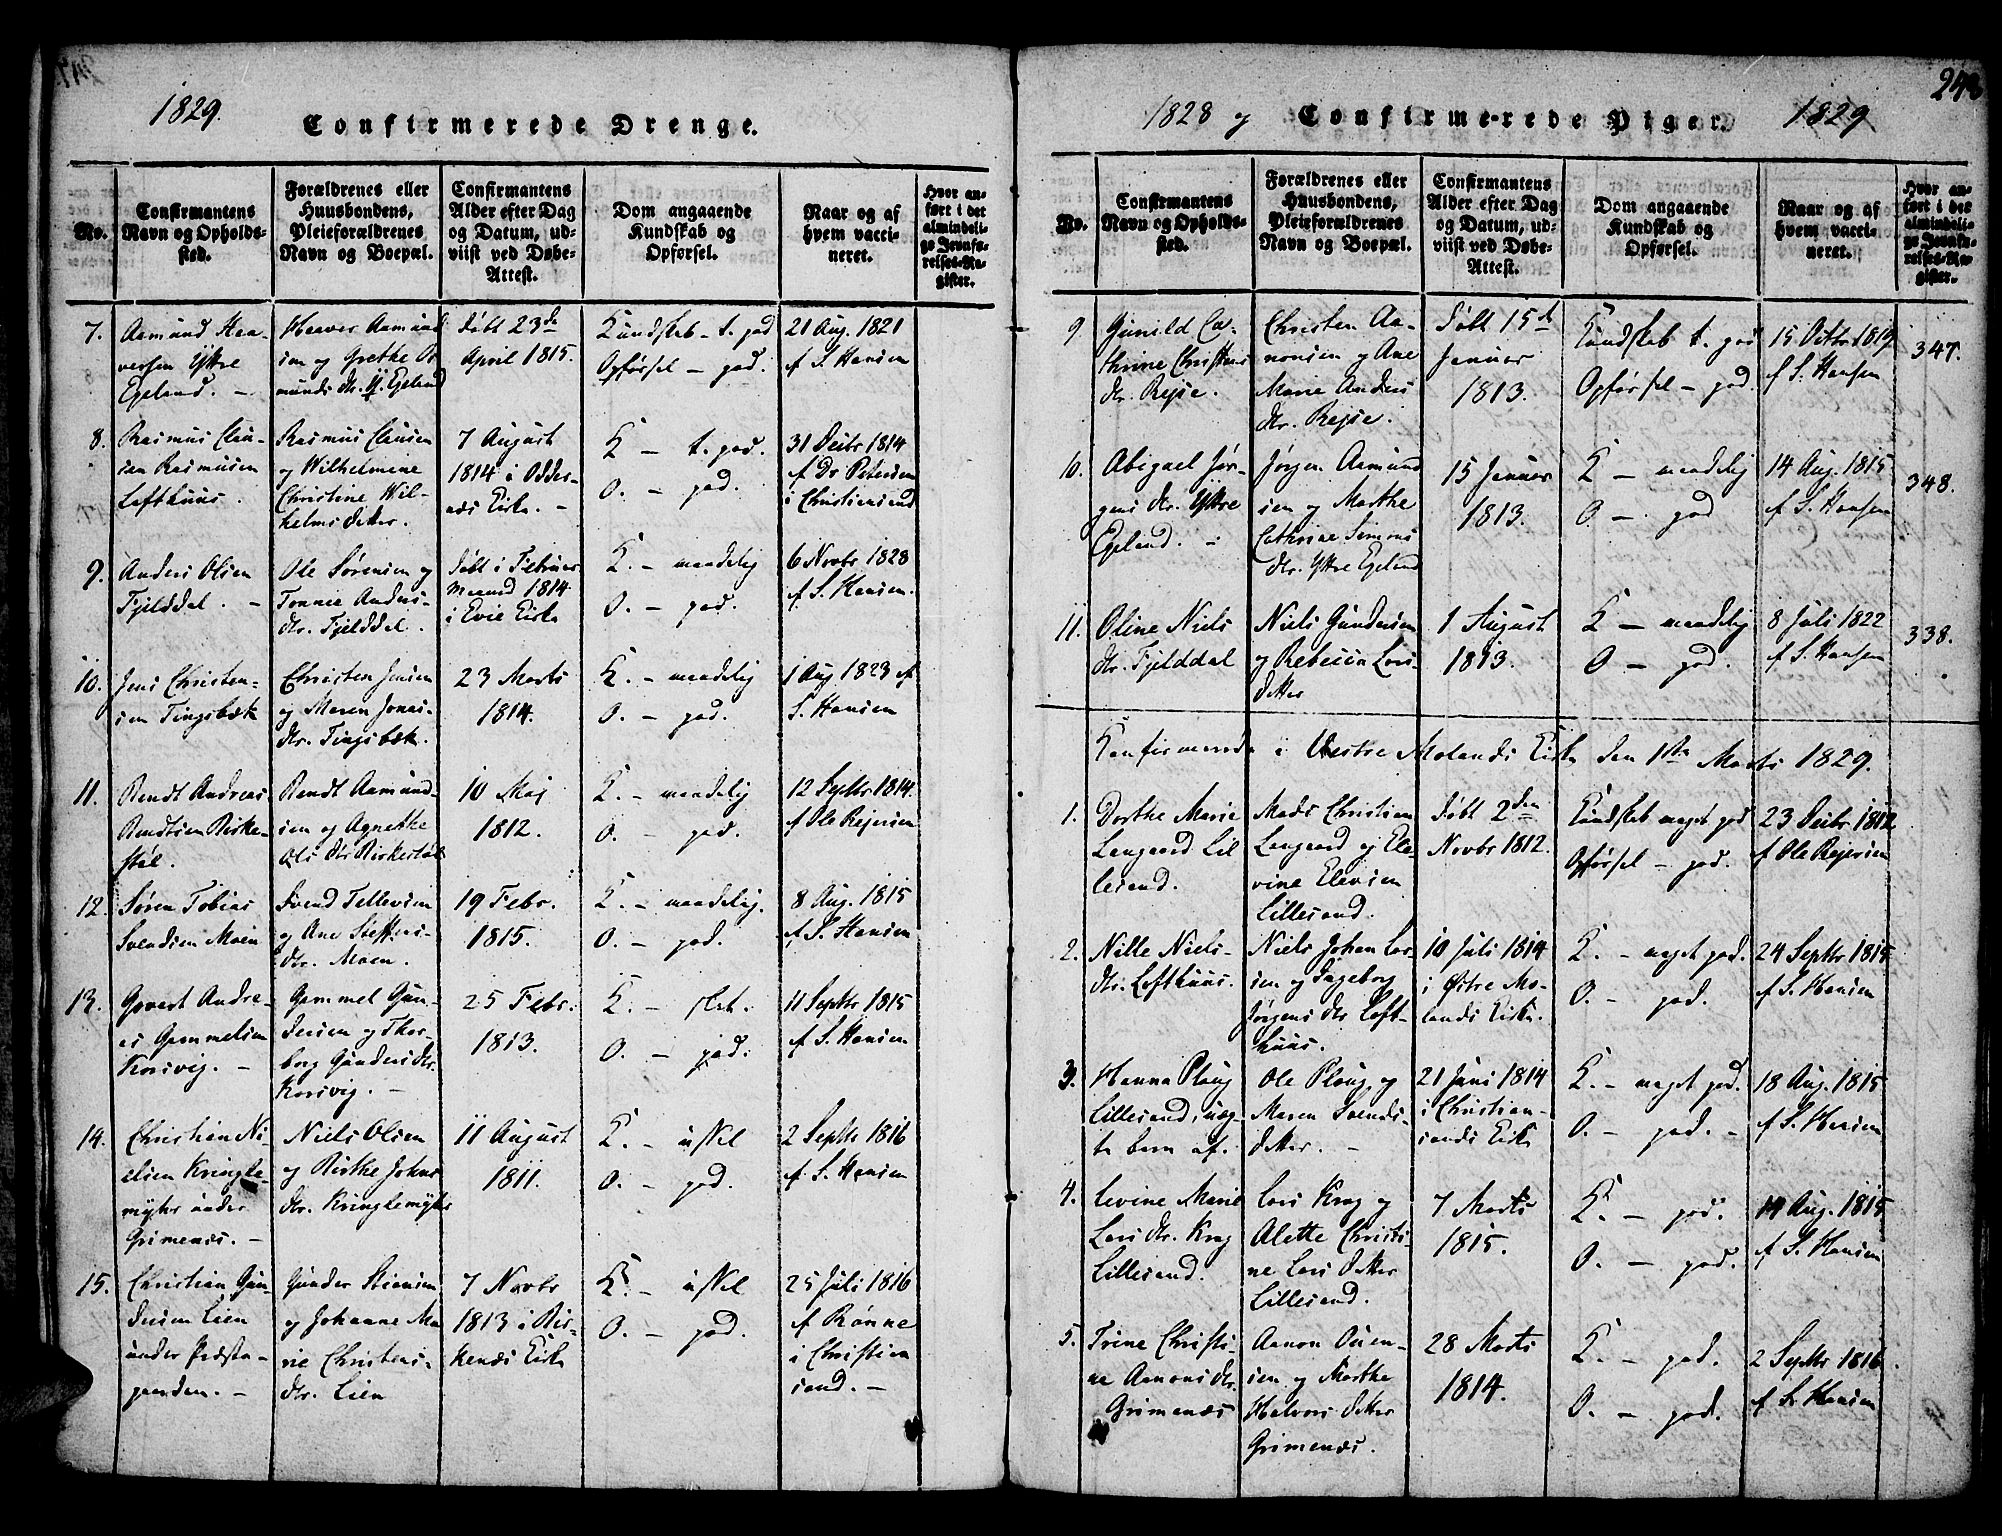 1829.
Confirmerede Drenge.
No.
Confirmantens
Navn og Opholds-
sted.
Forældrenes eller
Huusbondens,
Pleieforældrenes
Navn og Boepæl.
Confirmantens
Alder efter Dag
og Datum, ud-
viist ved Døbe-
Attest.
Dom angaaende
Kundskab og
Opførsel.
Naar og af
hvem vacci-
neret.
Hvor an-
ført i det
almindeli-
ge Jevnfø-
relses-Re-
gister.
7.
Aamund Haa-
versen Yttre
Egeland. -
Haaver Aamund
sen og Grethe
munds dtr. Y. Egeland
Døbt 23de
April 1815.
Kundskab - t. god
Opførsel - god.
21 Aug. 1821
af S. Hansen
8.
Rasmus Clau-
sen Rasmusen
Lofthuus.
Rasmus Clausen
og Wilhelmine
Christine Wil-
helms datter.
7 August
1814 i Odder-
næs Kirke. -
K - t. god.
O. - god.
31 Decbr 1814
af Dr Petersen
i Christiansand
9.
Anders Olsen
Fjelddal. -
Ole Sørensen og
Tonnie Anders-
dtr. Fjelddal.
Døbt i Februar
Maaned 1814
i Evie Kirke
K. - maadelig
O. - god.
6 Novbr 1828
af S. Hansen.
10.
Jens Christen-
sen Tingsbæk
Christen Jensen
og Maren Jonas-
dtr. Tingsbæk.
23 Marts
1814.
K. - maadelig
O. - god.
1 Aug 1823 af
S. Hansen
11.
Bendt Andreas
Bendtsen Birke-
støl.
Bendt Aamund-
sen og Agnethe
Ols dtr Birkestøl
10 Maj
1812.
K. - maadelig
O. - god.
12 Septbr 1814.
af Ole Rejersen
12.
Søren Tobias
Svendsen Moen
Svend Tellevsen
og Ane Steffens-
dtr. Moen.
19 Febr.
1815.
K. - maadelig.
O. - god.
8 Aug. 1815
af S. Hansen
13.
Govert Andre-
as Gammelsen
Korsvig. -
Gammel Gun-
dersen og Thor-
borg Gunders dtr.
Korsvig. -
25 Febr.
1813.
K. - slet.
O. - god.
11 Septbr 1815
af S. Hansen
14.
Christian Ni-
elsen Kringle-
myhr under
Grimenæs. -
Niels Olsen
og Birthe Johns
dtr. Kringlemyhr
11 August
1811.
K. - usSel
O. - god.
2 Septbr 1816
af S. Hansen
15.
Christian Gun-
dersen Lien
under Præste-
gaarden. -
Gunder Stiansen
og Johanne Ma
rie Christens-
dtr. Lien
7 Novbr
1813 i Bir-
kenæs Kirke
K. - ussel
O. - god.
25 Juli 1816
af Rønne
i Christian
sand. -
1828 og
Confirmerede Piger.
1829
248
No.
Confirmantens
Navn og Opholds-
sted.
Forældrenes eller
Huusbondens,
Pleieforældrenes
Navn og Boepæl.
Confirmantens
Alder efter Dag
og Datum, ud-
viist ved Døbe-
Attest.
Dom angaaende
Kundskab og
Opførsel.
Naar og af
hvem vacci-
neret.
Hvor an-
ført i det
almindeli-
ge Jevnfø-
relses-Re-
gister.
9.
Gunild Ca-
thrine Christens
dtr. Rejse.
Christen Aa-
nonsen og Ane
Marie Anders
dtr. Rejse.
Døbt 15d
Januar
1813.
Kundskab t. god
Opførsel - god.
15 Octbr 1819
af S. Hansen
347.
10.
Abigael Jør-
gens dtr. Yttre
Egeland. -
Jørgen Aamund
sen og Marthe
Cathrine Simons
dtr. Yttre Egeland
15 Januar
1813.
K - maadelig
O. - god
14 Aug. 1815
af S. Hansen
348.
11.
Oline Niels
dtr. Fjelddal
Niels Gundersen
og Rebecca Lars
datter
1 August
1813.
K - maadelig
O - god.
8 Juli 1822
af S. Hansen
338.
Konfirmerede i Vestre Molands Kirke den 1ste Marts 1829.
1.
Dorthe Marie
Langaard Lil
lesand.
Mads Christian
Langaard og Ele-
vine Elevsen
Lillesand.
Døbt 2den
Novbr 1812.
Kundskab meget god
Opførsel - god.
23 Decbr 1812
af Ole Rejersen
2.
Nille Niels-
dtr. Lofthuus.
Niels Johan Lar-
sen og Ingeborg
Jørgens dtr Loft-
huus.
10 Juli 1814
i Østre Mo-
lands Kirke.
K. - meget god.
O. - god.
24 Septbr 1815
af S. Hansen
3.
Hanna Ploug
Lillesand, uæg-
te barn af.
Ole Ploug og
Maren Svends-
datter. -
21 Juni 1814
i Christian-
sands Kirke
K. - meget god.
O. - god. -
18 Aug. 1815
af S. Hansen
4.
Levine Marie
Lars dtr. Krog
Lillesand.
Lars Krog og
Alette Christi-
ne Lars datter
Lillesand.
7 Marts
1815.
K. - god.
O. - god.
14 Aug. 1815
af S. Hansen
5.
Trine Christi-
ne Aanons dtr.
Grimenæs
Aanon Ouen-
sen og Marthe
Halvors datter
Grimenæs.
28 Marts
1814.
K. - god.
O. - god.
2 Septbr 1816.
af S. Hansen